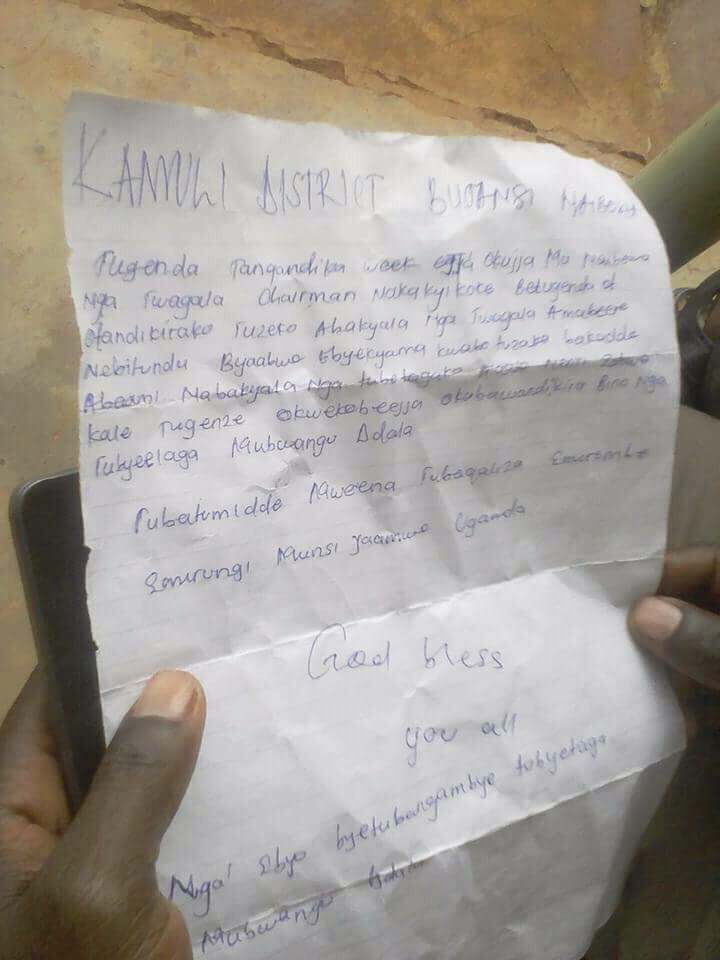 KAMULI DISTRICT BUGANSI
Tugenda Tangandika week egja Okujja Mu
Nga Twagala Chairman Nakakyikote Betugenda o
tandikirako Tuzeko Abakyala Nga Twagala Amabeere
Nebitundu Byaabwe Ebyekyama kwabo tuzako bakadde
Abaami Nabakyala Nga tubitaguta
kale Tugenze Okwekobeejja Okubawandikira Bino Nga
Tubyeelaga Mubwangu Adala
Tubatumidde Mweena Tubagaliza
Gamrungi Munsi Yaamwe Uganda
God bless
you all
Nga' Ebyo byetubangambye tubyetaga
Mubwangu